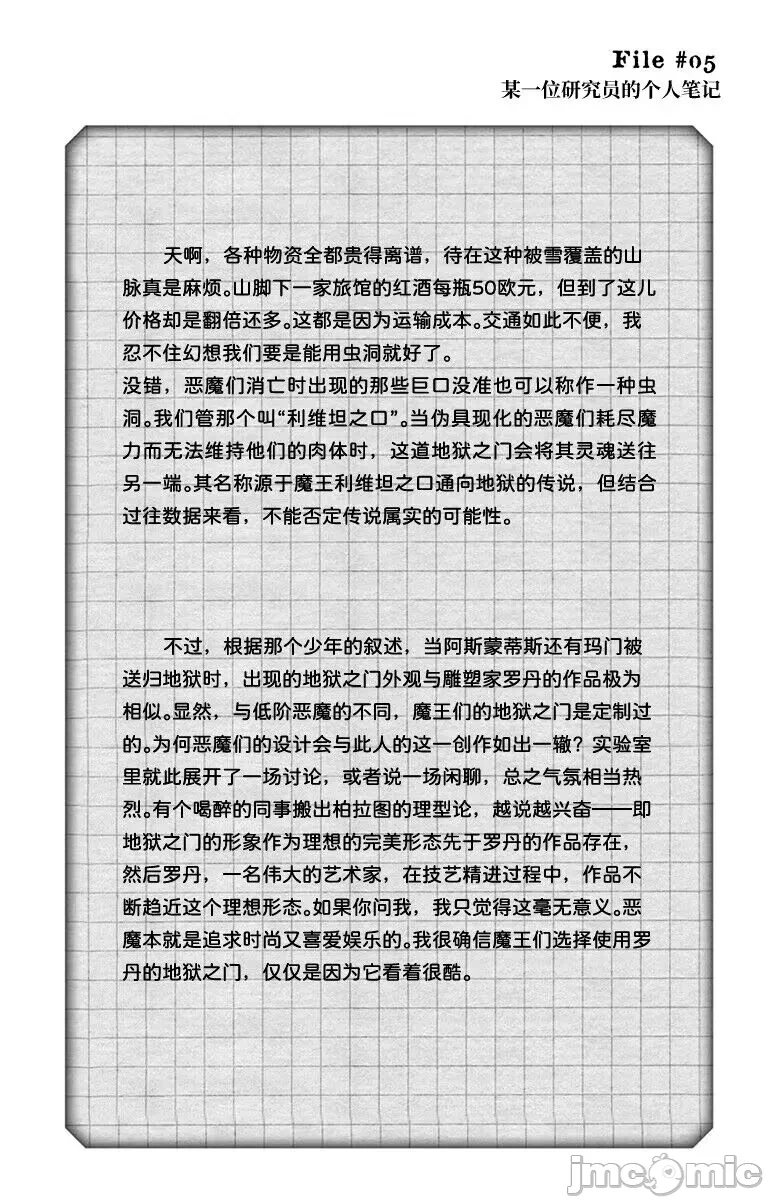 File #05
某一位研究员的个人笔记
天啊，各种物资全都贵得离谱，待在这种被雪覆盖的山
脉真是麻烦。山脚下一家旅馆的红酒每瓶50欧元，但到了这儿
价格却是翻倍还多。这都是因为运输成本。交通如此不便，我
忍不住幻想我们要是能用虫洞就好了。
没错，恶魔们消亡时出现的那些巨口没准也可以称作一种虫
洞。我们管那个叫“利维坦之口”。当伪具现化的恶魔们耗尽魔
力而无法维持他们的肉体时，这道地狱之门会将其灵魂送往
另一端。其名称源于魔王利维坦之口通向地狱的传说，但结合
过往数据来看，不能否定传说属实的可能性。
不过，根据那个少年的叙述，当阿斯蒙蒂斯还有玛门被
送归地狱时，出现的地狱之门外观与雕塑家罗丹的作品极为
相似。显然，与低阶恶魔的不同，魔王们的地狱之门是定制过
的。为何恶魔们的设计会与此人的这一创作如出一辙？实验室
里就此展开了一场讨论，或者说一场闲聊，总之气氛相当热
烈。有个喝醉的同事搬出柏拉图的理型论，越说越兴奋——即
地狱之门的形象作为理想的完美形态先于罗丹的作品存在，
然后罗丹，一名伟大的艺术家，在技艺精进过程中，作品不
断趋近这个理想形态。如果你问我，我只觉得这毫无意义。恶
魔本就是追求时尚又喜爱娱乐的。我很确信魔王们选择使用罗
丹的地狱之门，仅仅是因为它看着很酷。
jmcomic